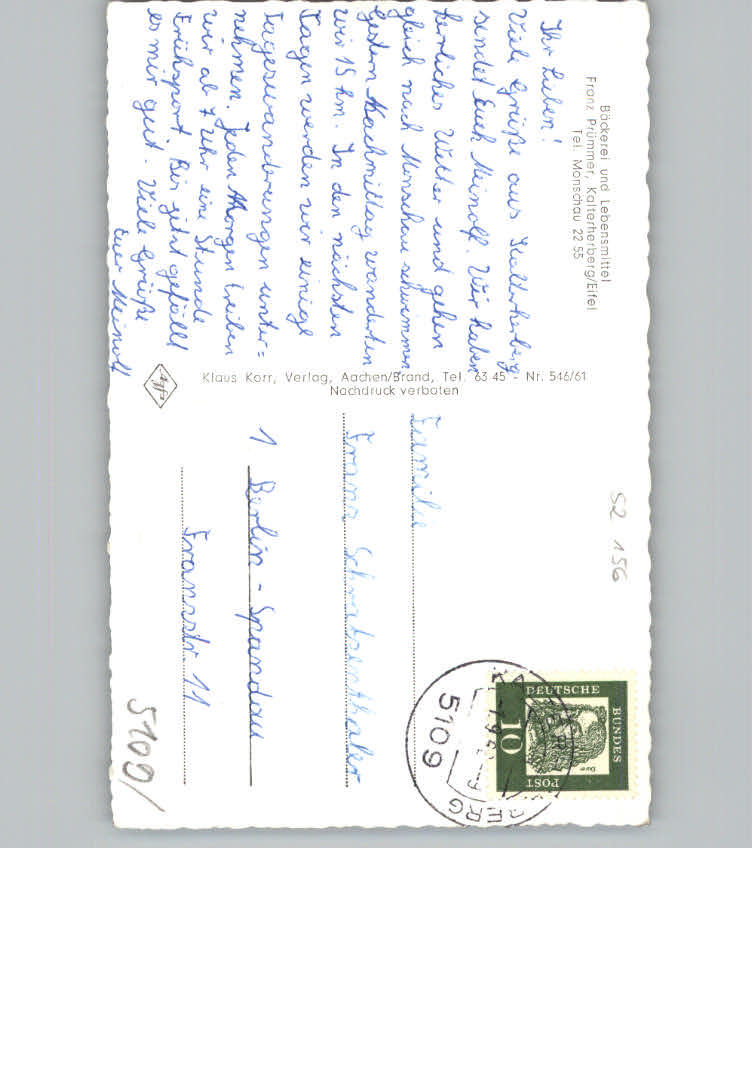 Bäckerei und Lebensmittel
Franz Prümmer, Kalterherberg/Eifel
Tel. Monschau 22 55
Ihr Lieben!
Viele Grüße aus Kalterherberg
sendet Euch Meinolf. Wir haben
herrliches Wetter und gehen
gleich nach Monschau schwimmen
Gestern Nachmittag wanderten
wir 15 km. In den nächsten
Tagen werden wir einige
Tageswanderungen unter=
nehmen. Jeden Morgen treiben
wir ab 7 Uhr eine Stunde
Frühsport. Bis jetzt gefällt
es mir gut. Viele Grüße
Euer Meinolf
Klaus Korr, Verlag, Aachen/Brand, Tel. 63 45 - Nr. 546/61
Nachdruck verboten
Agfa
52 156
DEUTSCHE
BUNDES
POST
10
Dürer
5109
Familie
Franz Schratzenthaler
1 Berlin - Spandau
Franzstr. 11
5109/